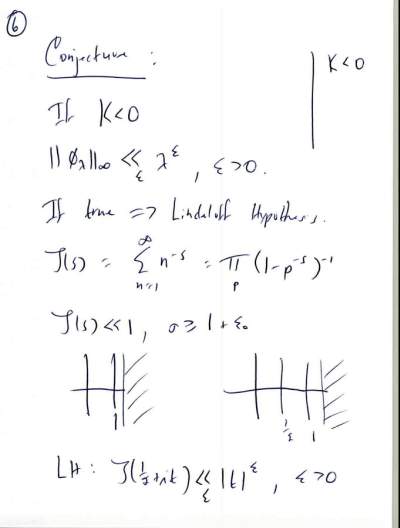 6
Conjecture :
K<0
If K<0
||ϕλ||∞ ≪ε λ^ε , ε>0.
If true => Lindeloff Hypothesis.
ζ(s) = ∑_{n=1}^∞ n^{-s} = ∏_p (1-p^{-s})^{-1}
ζ(s) ≪ 1, σ ≥ 1+ε₀
1
½ 1
LH : ζ(½+it) ≪ε |t|^ε , ε>0